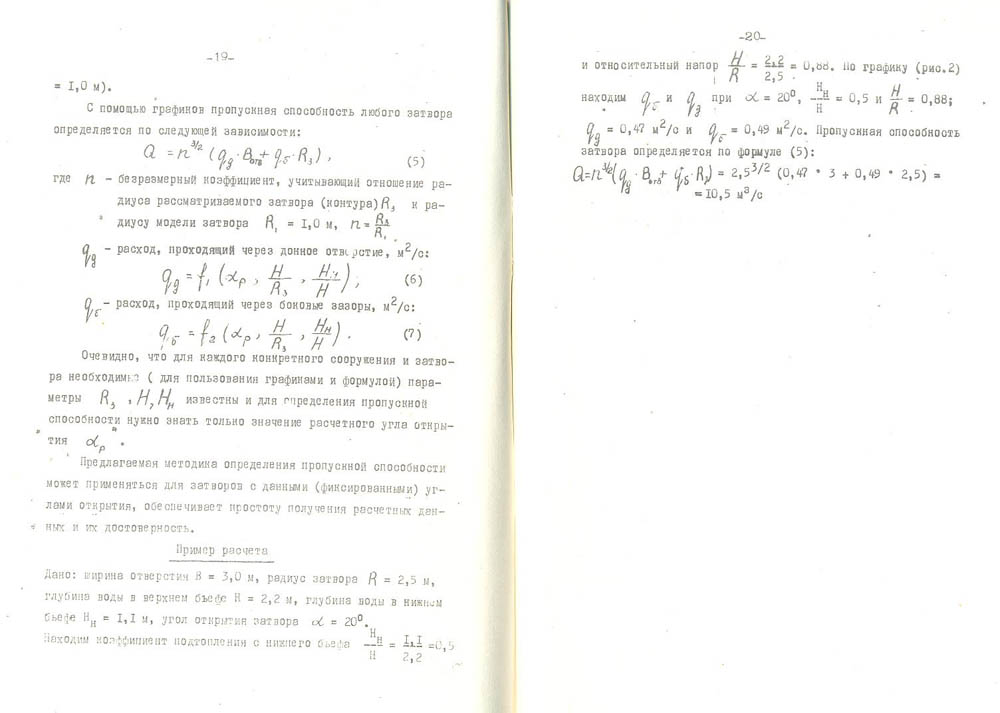 -19-
= I,0 м).
С помощью графинов пропускная способность любого затвора
определяется по следующей зависимости:
Q = n^3/2 (q_д · B_отв + q_б · R_з), (5)
где n - безразмерный коэффициент, учитывающий отношение ра-
диуса рассматриваемого затвора (контура) R_з к ра-
диусу модели затвора R_1 = I,0 м, n = R_з/R_1.
q_д - расход, проходящий через донное отверстие, м²/с:
q_д = f_1 (α_р, H/R_з, H_н/H), (6)
q_б - расход, проходящий через боковые зазоры, м²/с:
q_б = f_2 (α_р, H/R_з, H_н/H). (7)
Очевидно, что для каждого конкретного сооружения и затво-
ра необходимые ( для пользования графинами и формулой) пара-
метры R_з , H, H_н известны и для определения пропускной
способности нужно знать только значение расчетного угла откры-
тия " α_р ".
Предлагаемая методика определения пропускной способности
может применяться для затворов с данными (фиксированными) уг-
лами открытия, обеспечивает простоту получения расчетных дан-
ных и их достоверность.
Пример расчета
Дано: ширина отверстия В = 3,0 м, радиус затвора R = 2,5 м,
глубина воды в верхнем бьефе Н = 2,2 м, глубина воды в нижнем
бьефе Н_н = I,I м, угол открытия затвора α = 20⁰.
Находим коэффициент подтопления с нижнего бьефа Н_н/Н = I,I/2,2 =0,5
-20-
и относительный напор H/R = 2,2/2,5 = 0,88. По графику (рис.2)
находим q_б и q_д при α = 20⁰, Н_н/Н = 0,5 и H/R = 0,88;
q_д = 0,47 м²/с и q_б = 0,49 м²/с. Пропускная способность
затвора определяется по формуле (5):
Q=n^3/2(q_д · B_отв + q_б · R_1) = 2,5^3/2 (0,47 * 3 + 0,49 * 2,5) =
= 10,5 м³/с